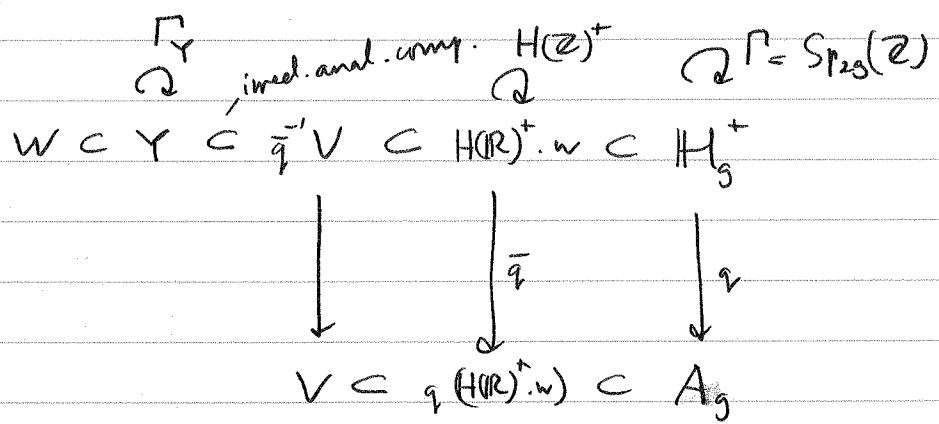 Γ_Y irred. anal. comp. H(ℤ)⁺ Γ = Sp_{2g}(ℤ)
W ⊂ Y ⊂ q̄⁻¹V ⊂ H(ℝ)⁺.w ⊂ ℍ_g⁺
q̄ q
V ⊂ q(H(ℝ)⁺.w) ⊂ A_g